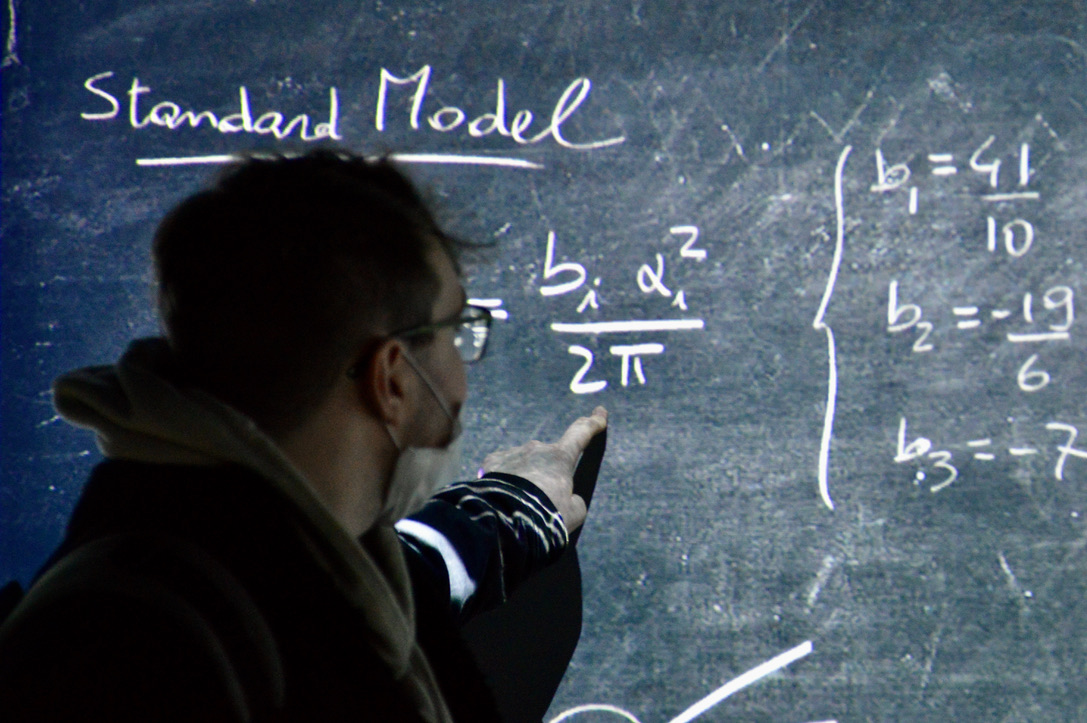 Standard Model
= bᵢ αᵢ² / 2π
b₁ = 41/10
b₂ = -19/6
b₃ = -7